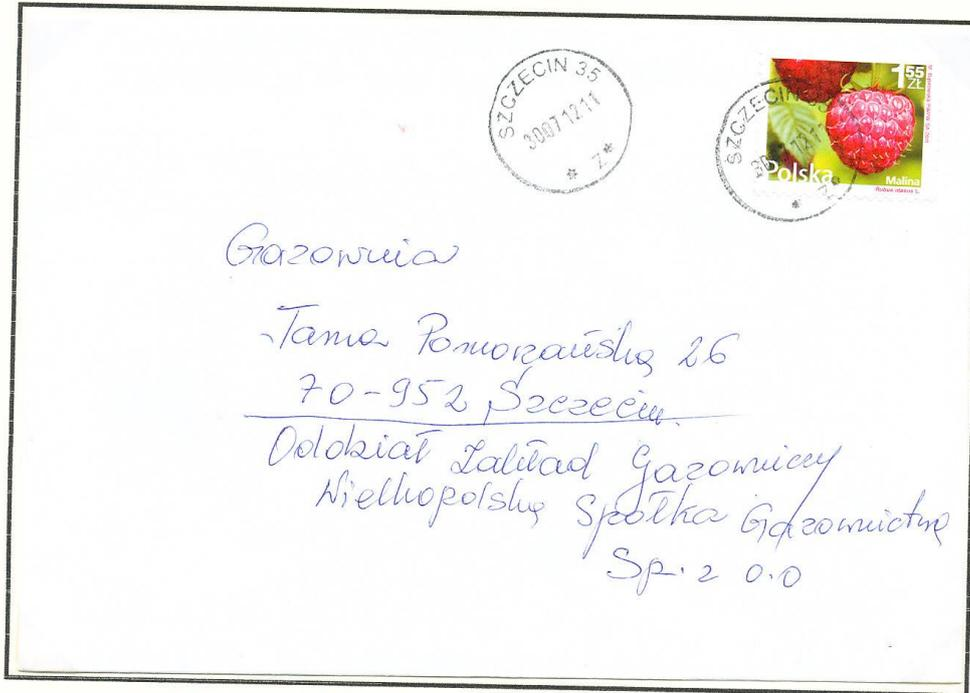 SZCZECIN 35
300712.11
* Z *
SZCZECIN 35
1 55 ZŁ
Polska
Malina
Rubus idaeus L.
Gazownia
Tama Pomorzańska 26
70-952 Szczecin
Oddział Zakład Gazowniczy
Wielkopolska Spółka Gazownictwa
Sp. z o.o